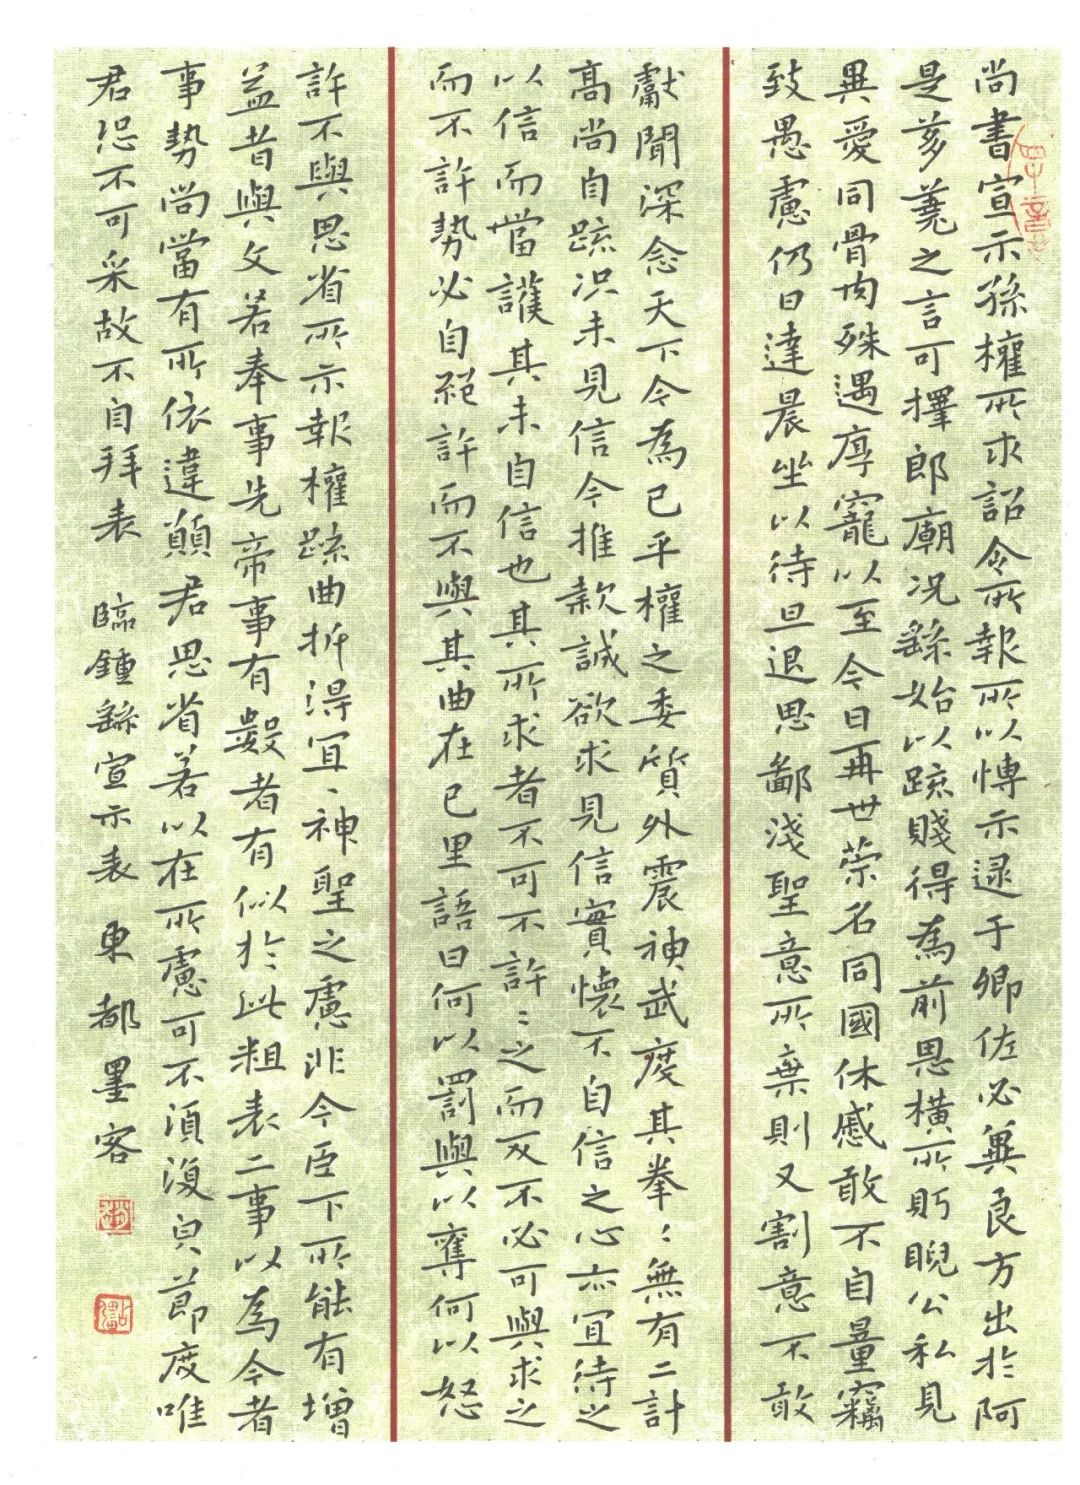 尚書宣示孫權所求詔令所報所以博示逮于卿佐必冀良方出於阿
是芻蕘之言可擇郎廟況繇始以疏賤得為前恩橫所眄睨公私見
異愛同骨肉殊遇厚寵以至今日再世榮名同國休慼敢不自量竊
致愚慮仍日達晨坐以待旦退思鄙淺聖意所棄則又割意不敢
獻聞深念天下今為已平權之委質外震神武度其拳〻無有二計
高尚自疏況未見信今推款誠欲求見信實懷不自信之心亦宜待之
以信而當護其未自信也其所求者不可不許〻之而反不必可與求之
而不許勢必自絕許而不與其曲在己里語曰何以罰與以奪何以怒
許不與思省所示報權疏曲折得宜、神聖之慮非今臣下所能有增
益昔與文若奉事先帝事有數者有似於此粗表二事以為今者
事勢尚當有所依違願君思省若以在所慮可不須復皃節度唯
君恐不可采故不自拜表 臨鍾繇宣示表 東都墨客